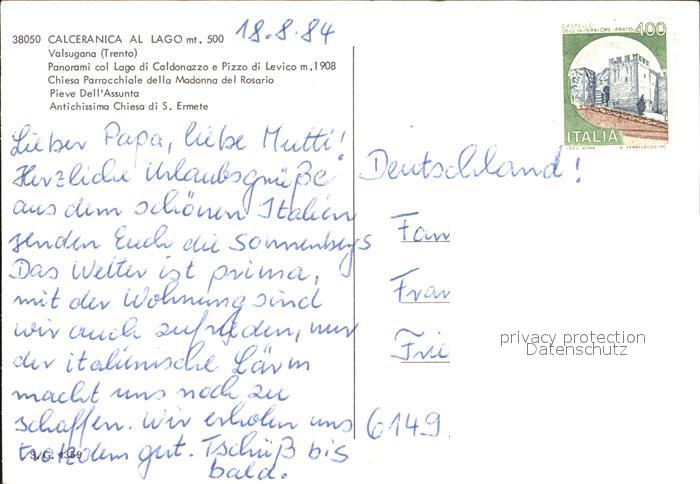 38050 CALCERANICA AL LAGO mt. 500
18.8.84
Valsugana (Trento)
Panorami col Lago di Caldonazzo e Pizzo di Levico m. 1908
Chiesa Parrocchiale della Madonna del Rosario
Pieve Dell'Assunta
Antichissima Chiesa di S. Ermete
Lieber Papa, liebe Mutti!
Herzliche Urlaubsgrüße
aus dem schönen Italien
senden Euch die Sonnenbergs
Das Wetter ist prima,
mit der Wohnung sind
wir auch zufrieden, nur
der italienische Lärm
macht uns noch zu
schaffen. Wir erholen uns
trotzdem gut. Tschüß bis
bald.
CASTELLO
DELL'IMPERATORE-PRATO 400
ITALIA
Deutschland!
Fam
Fran
Frie
privacy protection
Datenschutz
6149